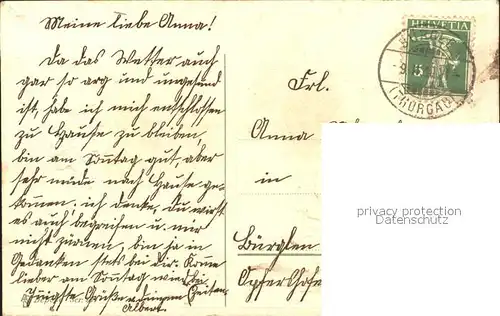 Meine liebe Anna!
Da das Wetter auch
gar so arg und ungesund
ist, habe ich mich entschlossen
zu Hause zu bleiben,
bin am Sonntag gut, aber
sehr müde nach Hause ge-
kommen. ich denke, Du wirst
es auch begreifen u. mir
nicht zürnen, bin ja in
Gedanken stets bei dir. Komme
lieber am Sonntag wieder
Innigste Grüße
Albert
HELVETIA
5
(THURGAU)
Frl.
Anna
in
Bürglen
privacy protection
Datenschutz